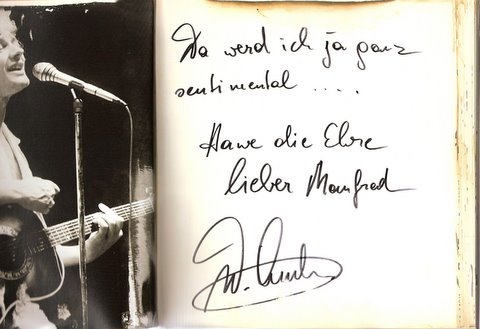 Da werd ich ja ganz
sentimental ....
Hawe die Ehre
lieber Manfred
W.